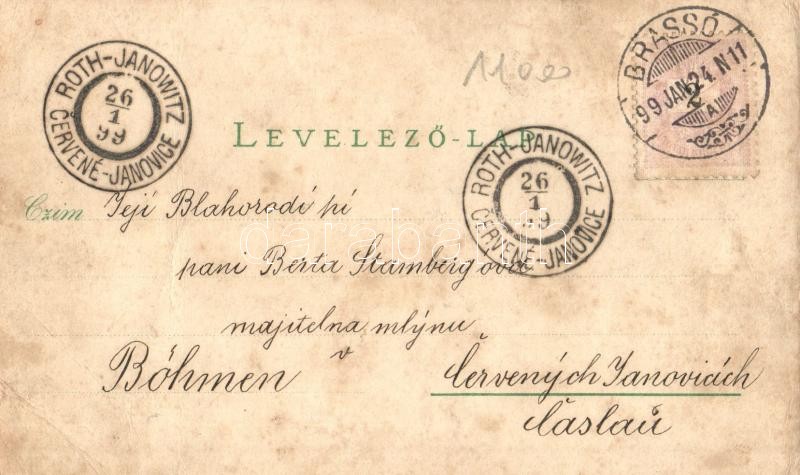 ROTH-JANOWITZ
26
1
99
ČERVENÉ-JANOVICE
1100
BRASSÓ
99 JAN. 24 N11
2
A
LEVELEZŐ-LAP.
ROTH-JANOWITZ
26
1
99
ČERVENÉ-JANOVICE
Czim Její Blahorodí pí
darabanth.com
pani Berta Stambergová
majitelna mlýnu
Böhmen v Červených Janoviích
Časlaú